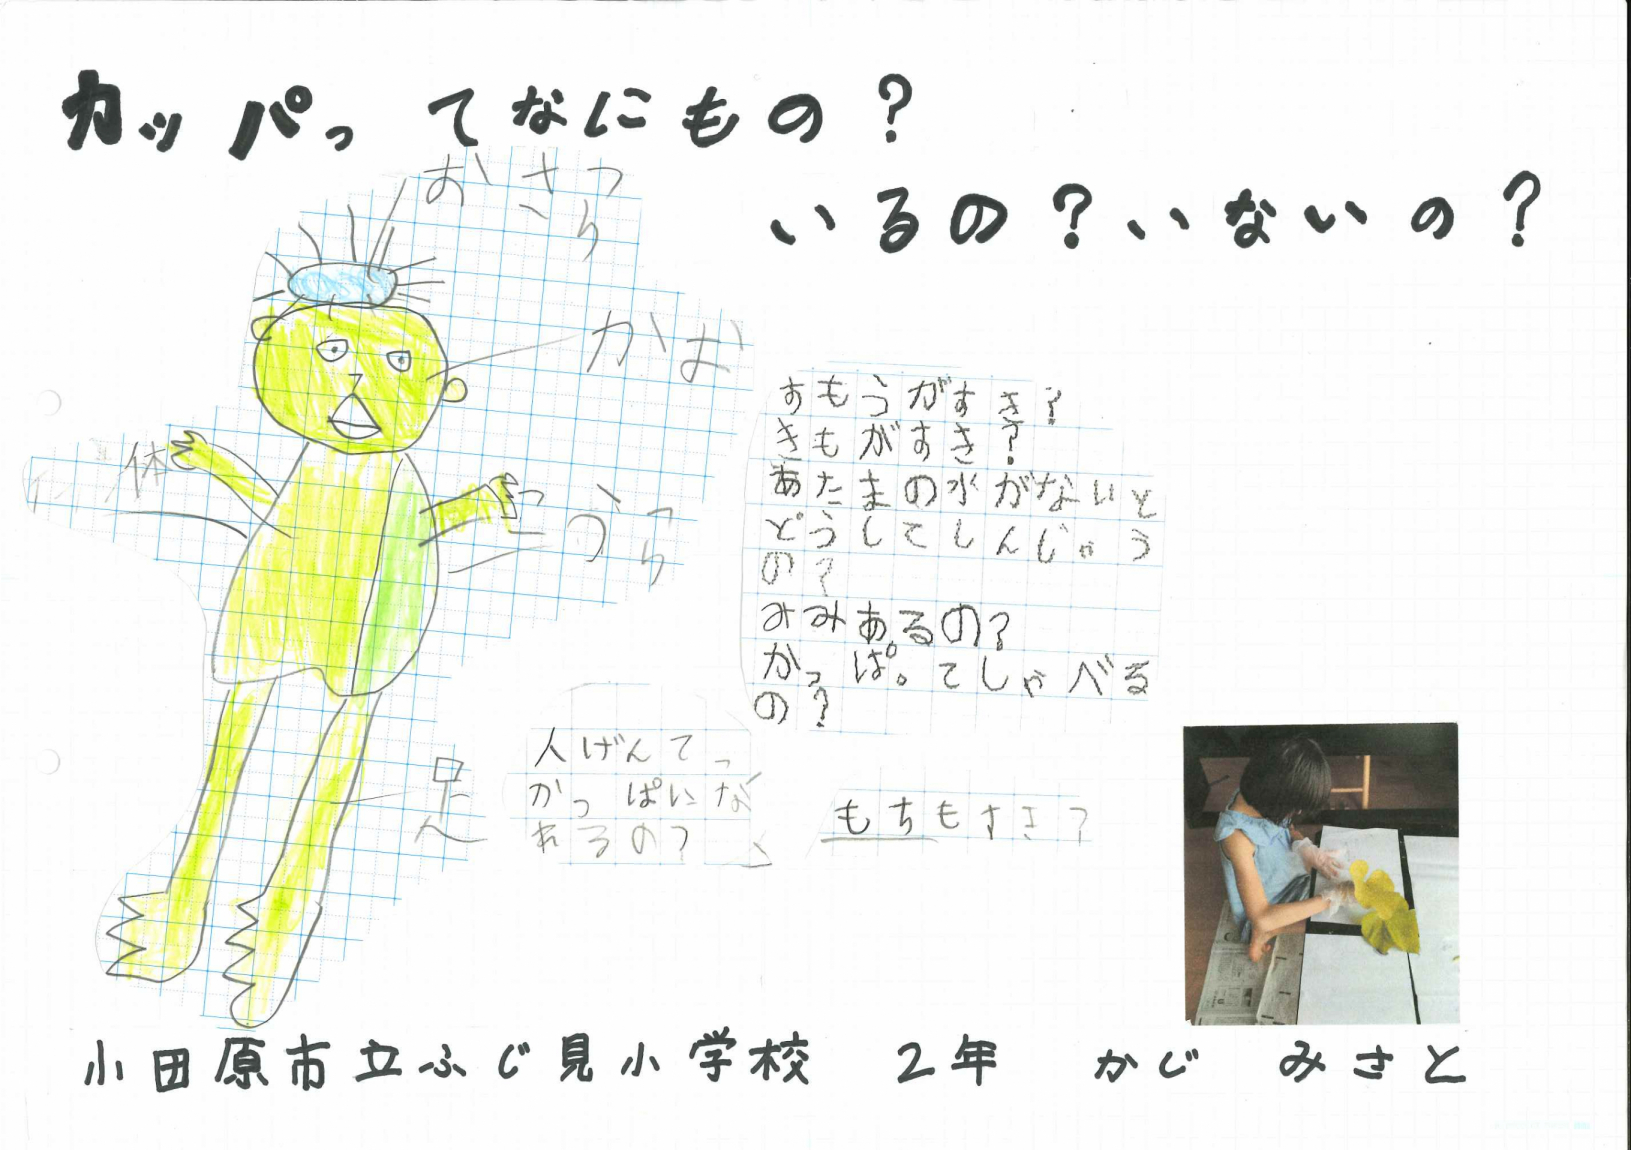 カッパってなにもの？
いるの？いないの？
おさら
かお
体
うら
足
すもうがすき？
きもがすき？
あたまの水がないと
どうしてしんじゃう
の？
みみあるの？
かっぱ。てしゃべる
の？
人げんてっ
かっぱにな
れるの？
もちもすき？
小田原市立ふじ見小学校　2年　かじ　みさと